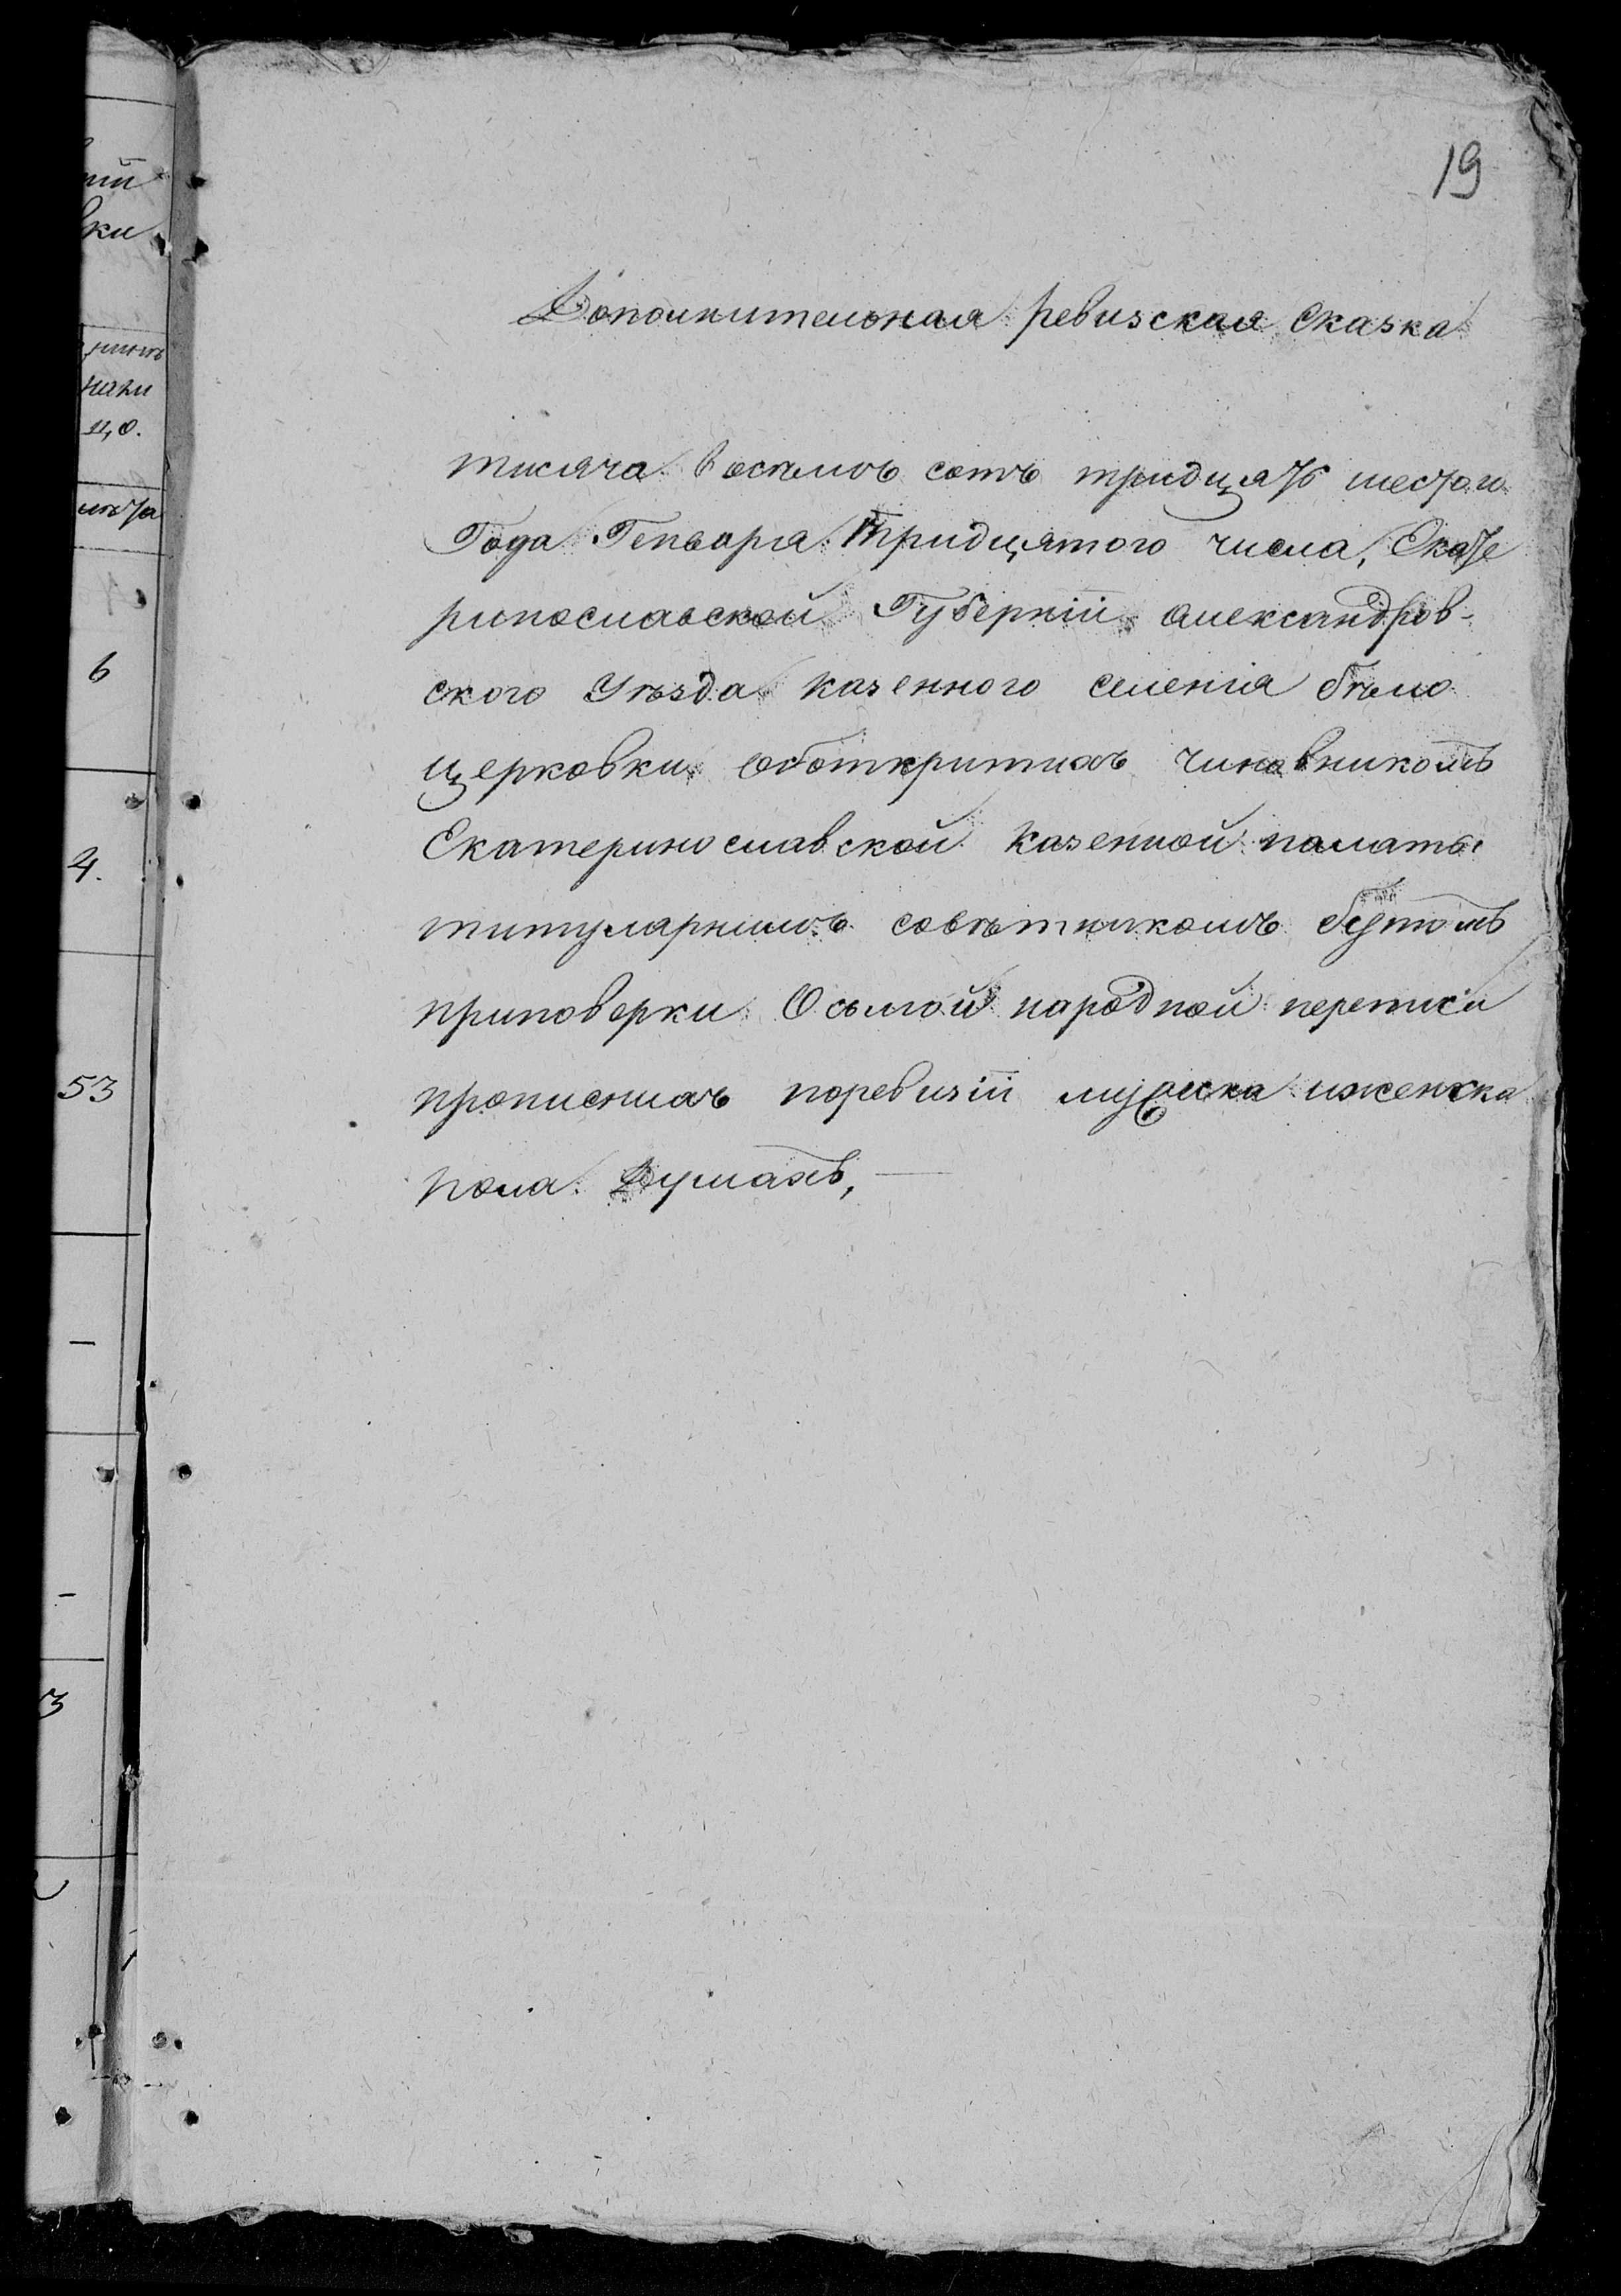 19
Дополнительная ревизская сказка
тисяча восемъ сотъ тридцять шестого
Года Генваря Тридцятого числа, Екате
ринославской Губерніи александров-
ского Уѣзда казенного селенія бѣло
церковки оботкритихъ чиновникомъ
Екатеринославской казенной палаты
титулярнимъ совѣтникомъ
приповерки Осьмой народной переписи
прописнихъ поревизіи мужска иженска
пола Душахъ,
ній
вки
лѣта
6
4.
53
—
-
3